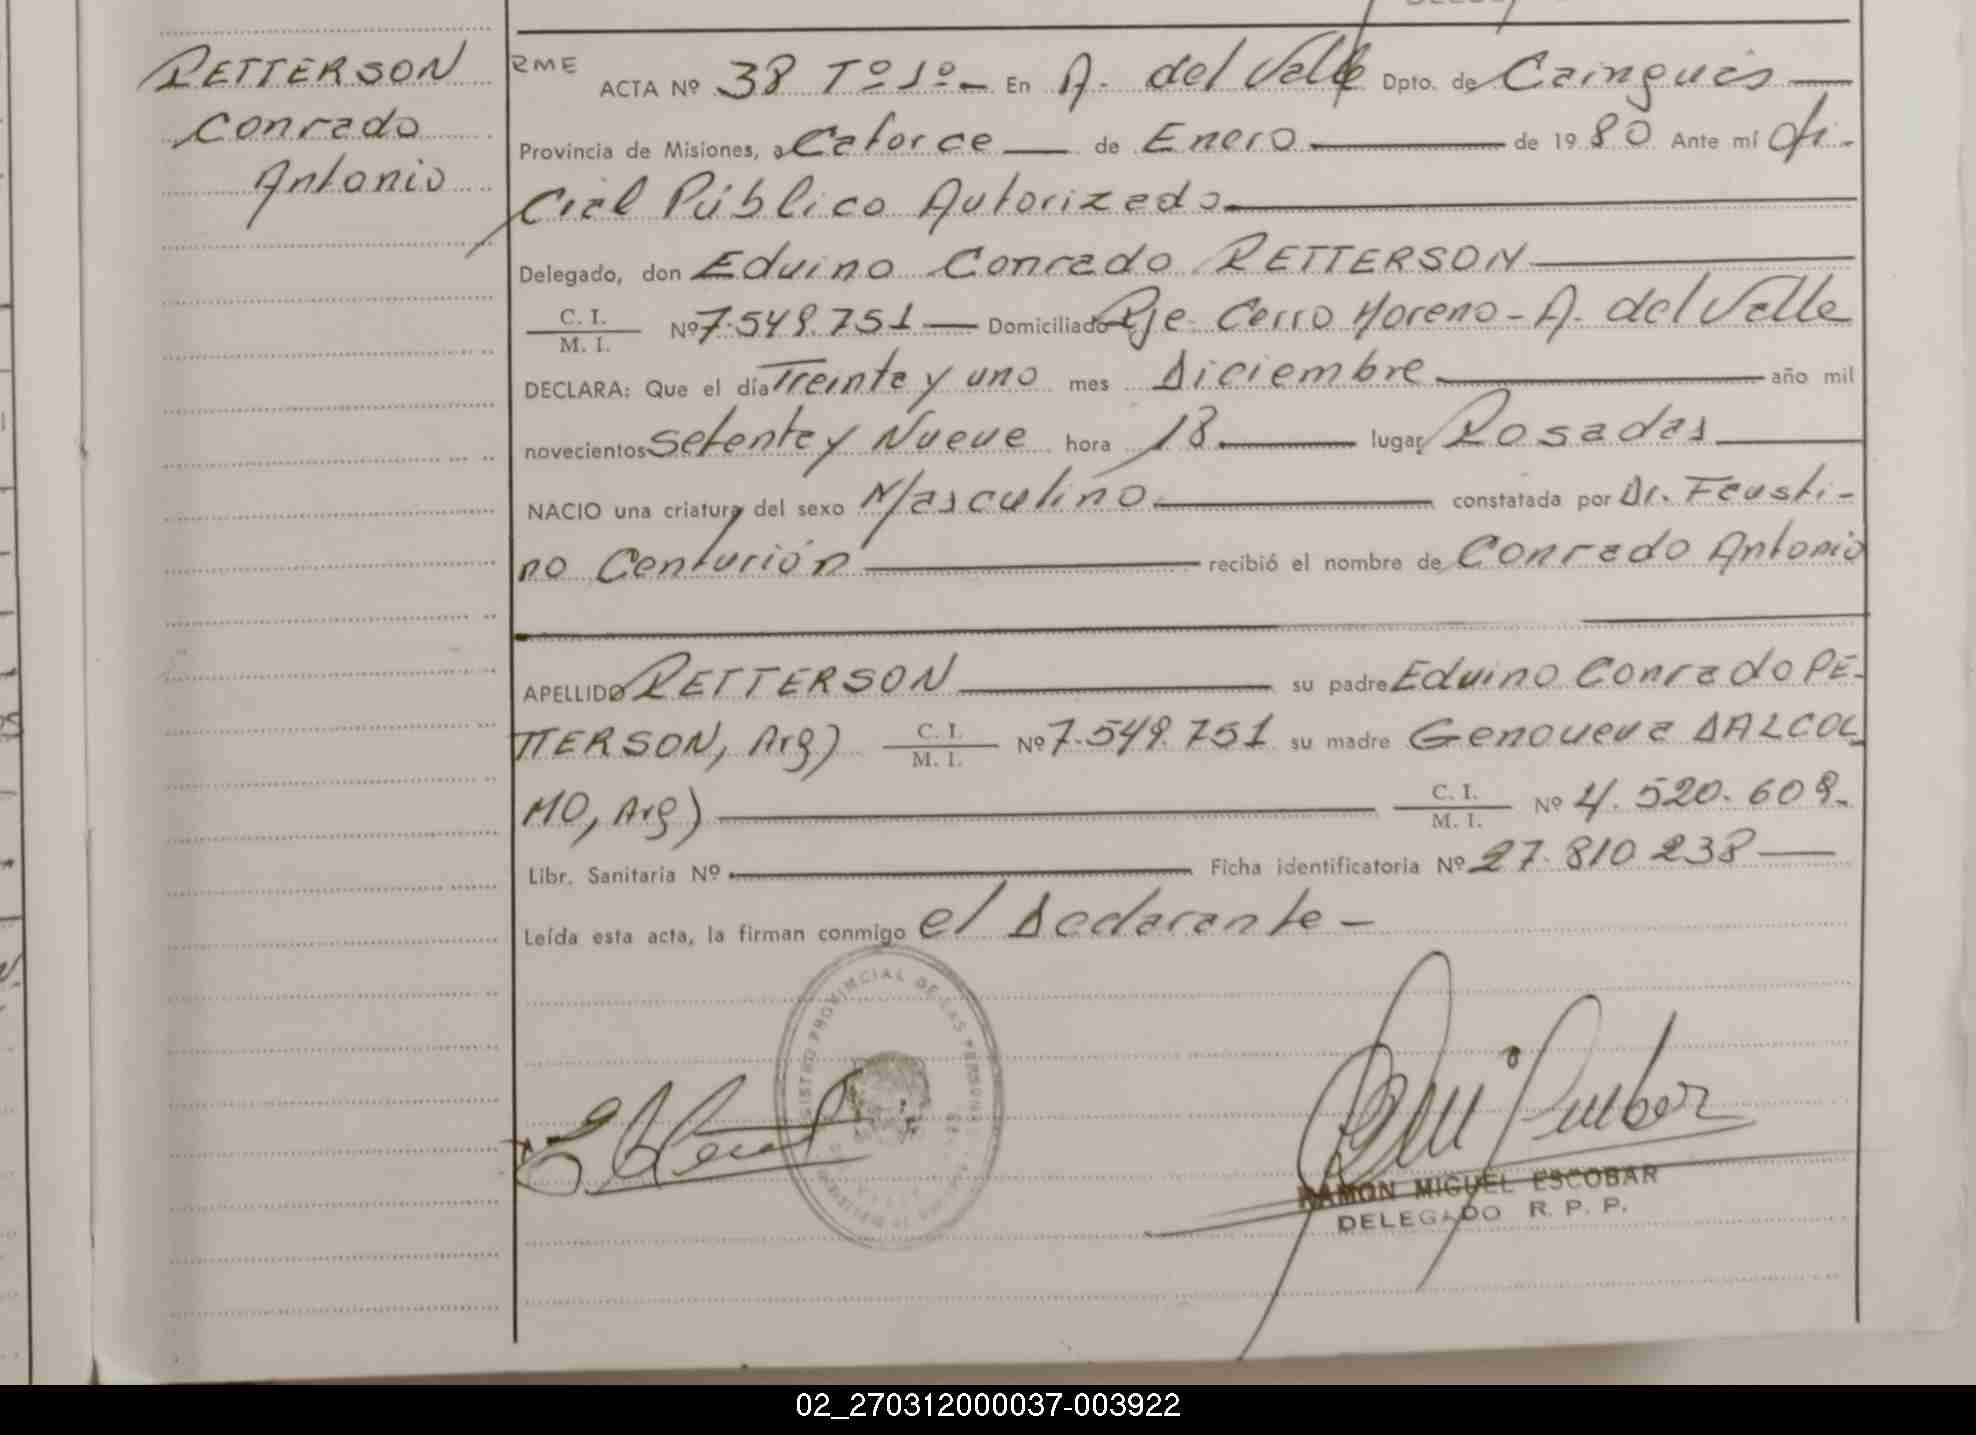 PETTERSON
Conrado
Antonio
RME
ACTA Nº 38 Tº 1º - En A. del Valle Dpto. de Cainguás
Provincia de Misiones, a Catorce de Enero de 1980 Ante mí Ofi-
cial Público Autorizado
Delegado, don Eduino Conrado PETTERSON
C. I.
M. I. Nº 7.549.751 Domiciliado Pje. Cerro Moreno - A. del Valle
DECLARA: Que el día Treinta y uno mes Diciembre año mil
novecientos Setenta y Nueve hora 18 lugar Posadas
NACIO una criatura del sexo Masculino constatada por Dr. Fausti-
no Centurión recibió el nombre de Conrado Antonio
APELLIDO PETTERSON su padre Eduino Conrado PE-
TTERSON, Arg) C. I. M. I. Nº 7.549.751 su madre Genoveva DALCOL
MO, Arg) C. I. M. I. Nº 4.520.609.
Libr. Sanitaria Nº Ficha identificatoria Nº 27.810.238
Leída esta acta, la firman conmigo el Declarante -
REGISTRO PROVINCIAL DE LAS PERSONAS
RAMON MIGUEL ESCOBAR
DELEGADO R. P. P.
02_270312000037-003922